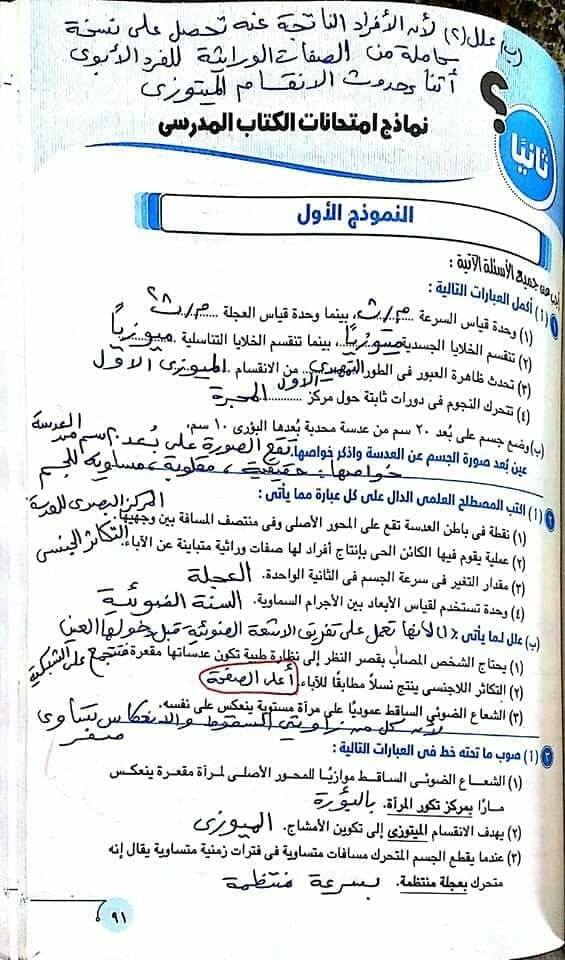 (ب) علل (٢) لأنه الأفراد الناتجة عنه تحصل على نسخة
كاملة من الصفات الوراثية للفرد الأبوى
أثناء حدوث الانقسام الميتوزى
ثانيًا
؟
نماذج امتحانات الكتاب المدرسى
النموذج الأول
أجب عن جميع الأسئلة الآتية :
١ (أ) أكمل العبارات التالية :
(١) وحدة قياس السرعة م/ث، بينما وحدة قياس العجلة م/ث٢
(٢) تنقسم الخلايا الجسدية ميتوزيًا، بينما تنقسم الخلايا التناسلية ميوزيًا
(٣) تحدث ظاهرة العبور فى الطور التمهيدى الأول من الانقسام الميوزى الأول
(٤) تتحرك النجوم فى دورات ثابتة حول مركز المجرة
(ب) وضع جسم على بُعد ٢٠ سم من عدسة محدبة بُعدها البؤرى ١٠ سم،
عين بُعد صورة الجسم عن العدسة واذكر خواصها. تقع الصورة على بُعد ٢٠ سم من العدسة
خواصها: حقيقية، مقلوبة، مساوية للجسم
٢ (أ) اكتب المصطلح العلمى الدال على كل عبارة مما يأتى :
(١) نقطة فى باطن العدسة تقع على المحور الأصلى وفى منتصف المسافة بين وجهيها. المركز البصرى للعدسة
(٢) عملية يقوم فيها الكائن الحى بإنتاج أفراد لها صفات وراثية متباينة عن الآباء. التكاثر الجنسى
(٣) مقدار التغير فى سرعة الجسم فى الثانية الواحدة. العجلة
(٤) وحدة تستخدم لقياس الأبعاد بين الأجرام السماوية. السنة الضوئية
(ب) علل لما يأتى : (١) لأنها تعمل على تفريق الأشعة الضوئية قبل دخولها العين
(١) يحتاج الشخص المصاب بقصر النظر إلى نظارة طبية تكون عدساتها مقعرة فتتجمع على الشبكية
(٢) التكاثر اللاجنسى ينتج نسلاً مطابقًا للآباء. أعلى الصفحة
(٣) الشعاع الضوئى الساقط عموديًا على مرآة مستوية ينعكس على نفسه.
لأنه كل من زاويتى السقوط والانعكاس تساوى
صفر
٣ (أ) صوب ما تحته خط فى العبارات التالية :
(١) الشعاع الضوئى الساقط موازيًا للمحور الأصلى لمرآة مقعرة ينعكس
مارًا بمركز تكور المرآة. بالبؤرة
(٢) يهدف الانقسام الميتوزى إلى تكوين الأمشاج. الميوزى
(٣) عندما يقطع الجسم المتحرك مسافات متساوية فى فترات زمنية متساوية يقال إنه
متحرك بعجلة منتظمة. بسرعة منتظمة
٩١